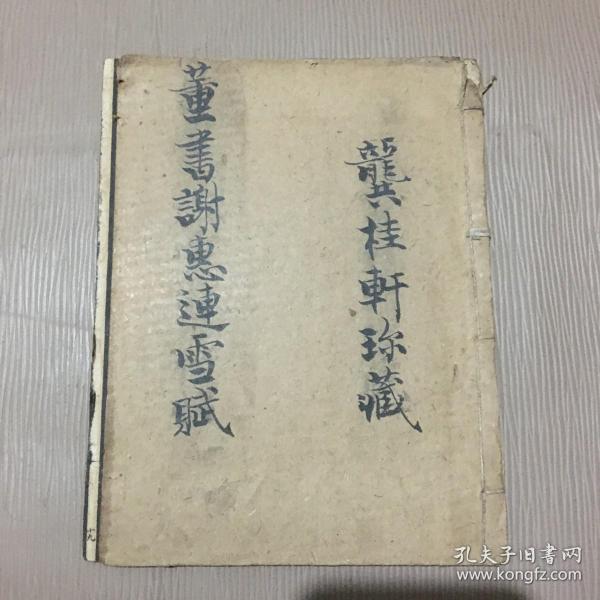 龔桂軒珎藏
董書謝惠連雪賦
十九
孔夫子旧書网
www.kongfz.com